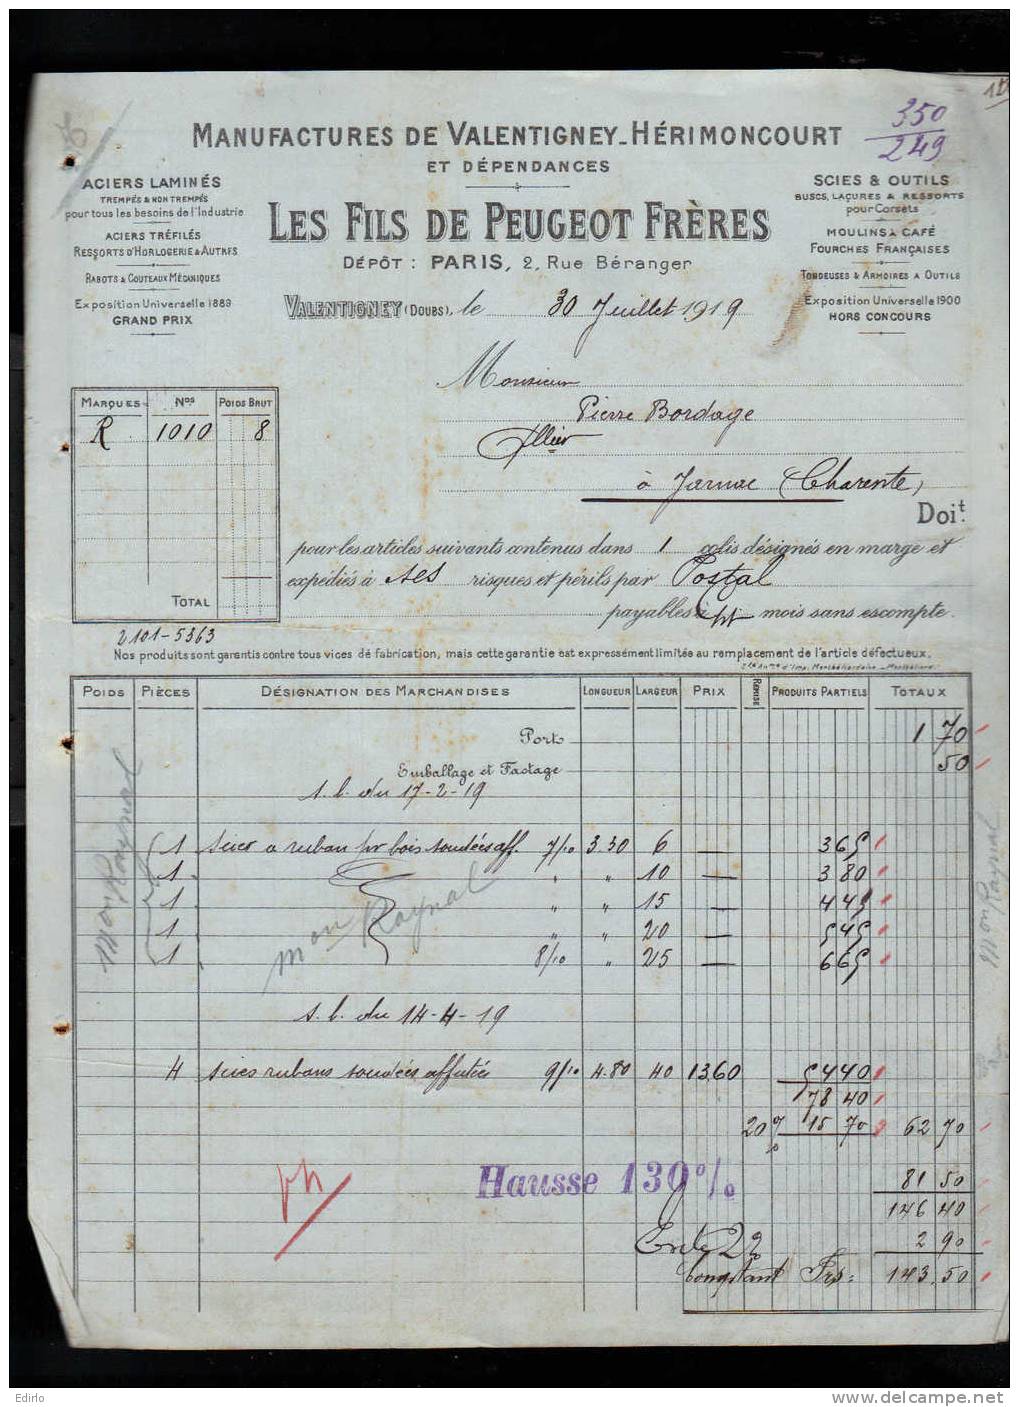 350
249
MANUFACTURES DE VALENTIGNEY-HÉRIMONCOURT
ET DÉPENDANCES
LES FILS DE PEUGEOT FRÈRES
DÉPÔT : PARIS, 2, Rue Béranger
ACIERS LAMINÉS
TREMPÉS & NON TREMPÉS
pour tous les besoins de l'Industrie
ACIERS TRÉFILÉS
RESSORTS D'HORLOGERIE & AUTRES
RABOTS & COUTEAUX MÉCANIQUES
Exposition Universelle 1889
GRAND PRIX
SCIES & OUTILS
BUSCS, LAÇURES & RESSORTS
pour Corsets
MOULINS A CAFÉ
FOURCHES FRANÇAISES
TONDEUSES & ARMOIRES A OUTILS
Exposition Universelle 1900
HORS CONCOURS
VALENTIGNEY (DOUBS), le 30 Juillet 1919
Monsieur
Pierre Bordage
à Jarnac (Charente)
Doit
MARQUES Nos POIDS BRUT
R 1010 8
TOTAL
pour les articles suivants contenus dans 1 colis désignés en marge et
expédiés à ses risques et périls par Postal
payables à ct mois sans escompte.
2101-5363
Nos produits sont garantis contre tous vices de fabrication, mais cette garantie est expressément limitée au remplacement de l'article défectueux.
Sté Anme d'Imp. Montbéliardaise - Montbéliard
POIDS PIÈCES DÉSIGNATION DES MARCHANDISES LONGUEUR LARGEUR PRIX REMISE PRODUITS PARTIELS TOTAUX
Port 1 70
Emballage et Factage 50
s.l. du 17-2-19
1 scies a ruban pr bois soudées aff. 7/10 3.30 6 — 3 65
1 " " 10 — 3 80
1 " " 15 — 4 45
1 " " 20 — 5 45
1 8/10 " 25 — 6 65
Mon Raynal
mon Raynal
Mon Raynal
s.l. du 14-4-19
4 scies rubans soudées affutées 9/10 4.80 40 13.60 54 40
78 40
20% 15 70 62 70
Hausse 130% 81 50
146 40
2 2% 2 90
Comptant Frs: 143.50
Edirlo
www.delcampe.net